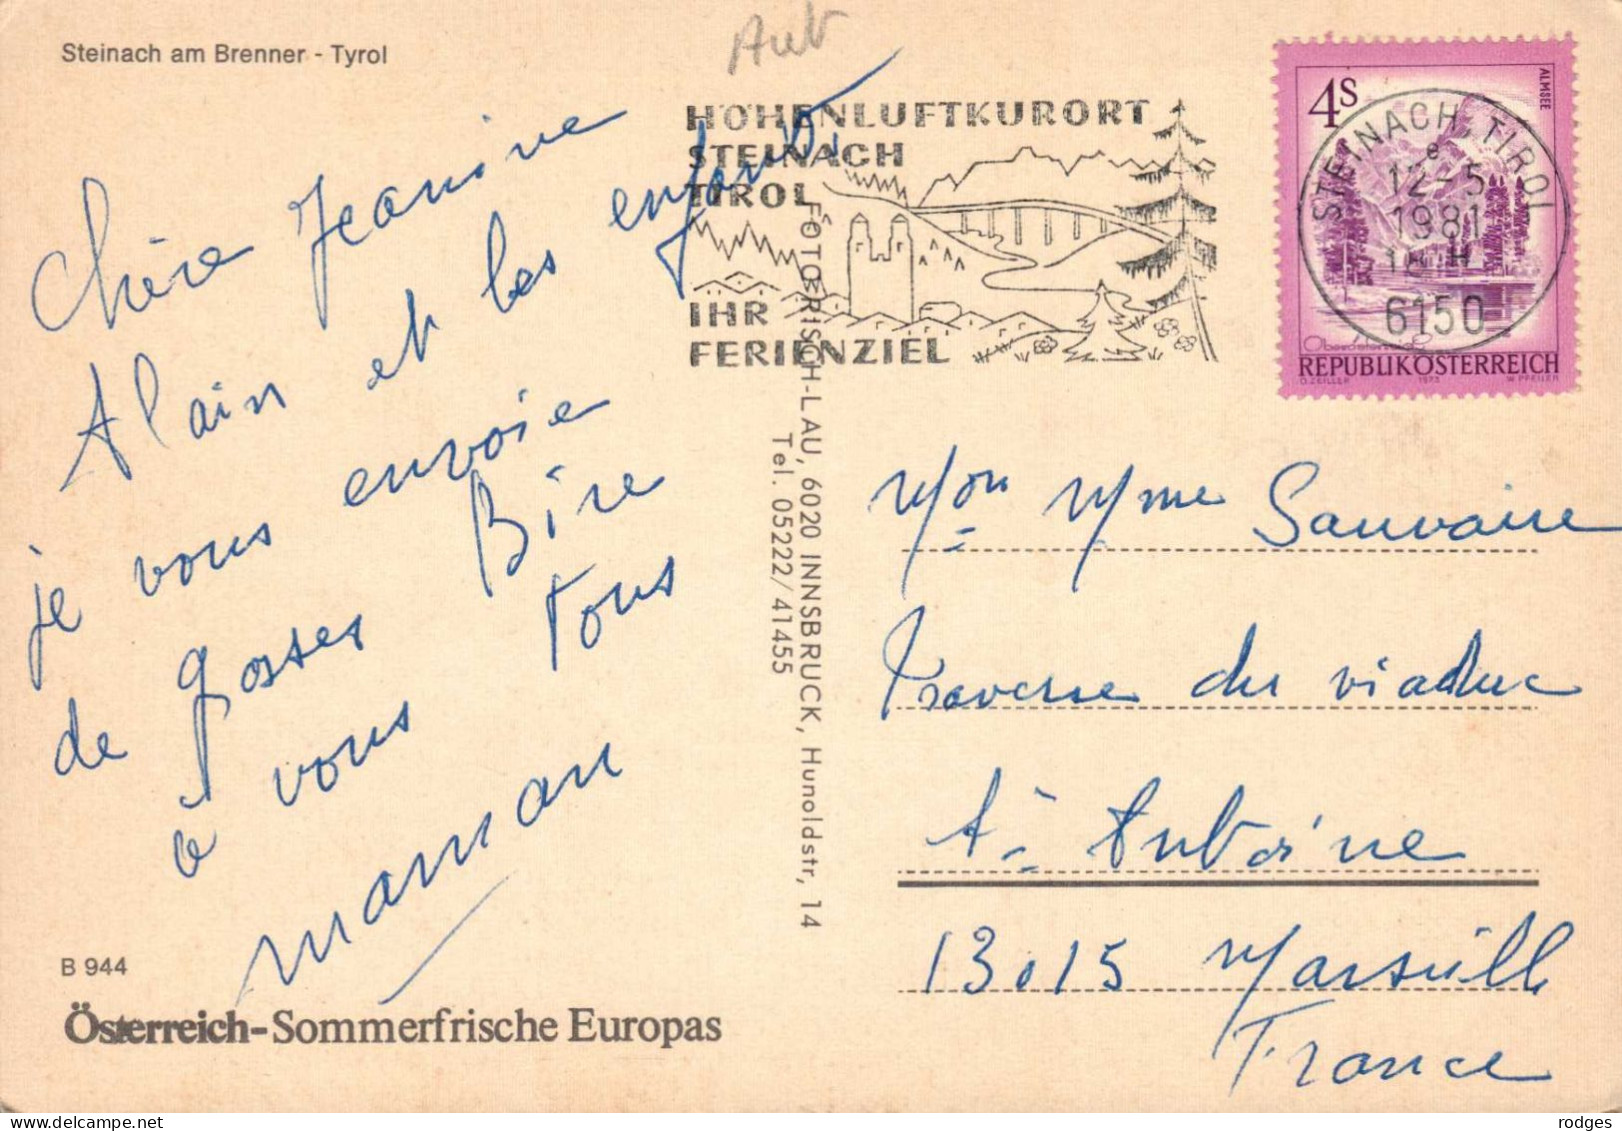 Steinach am Brenner - Tyrol
Aut
Chère Jeanine
Alain et les enfants,
je vous envoie
de Gosses Bise
à vous tous
maman
B 944
Österreich-Sommerfrische Europas
FOTO RISCH-LAU, 6020 INNSBRUCK, Hunoldstr, 14
Tel. 05222/41455
HÖHENLUFTKURORT
STEINACH
TIROL
IHR
FERIENZIEL
4S
ALMSEE
STEINACH TIROL
e
12-5
1981
6150
Oberösterreich
REPUBLIK ÖSTERREICH
O. ZEILLER 1973 W. PFEILER
Mon Mme Sauvaire
Traverse du viaduc
St Antoine
13015 Marseille
France
rodges